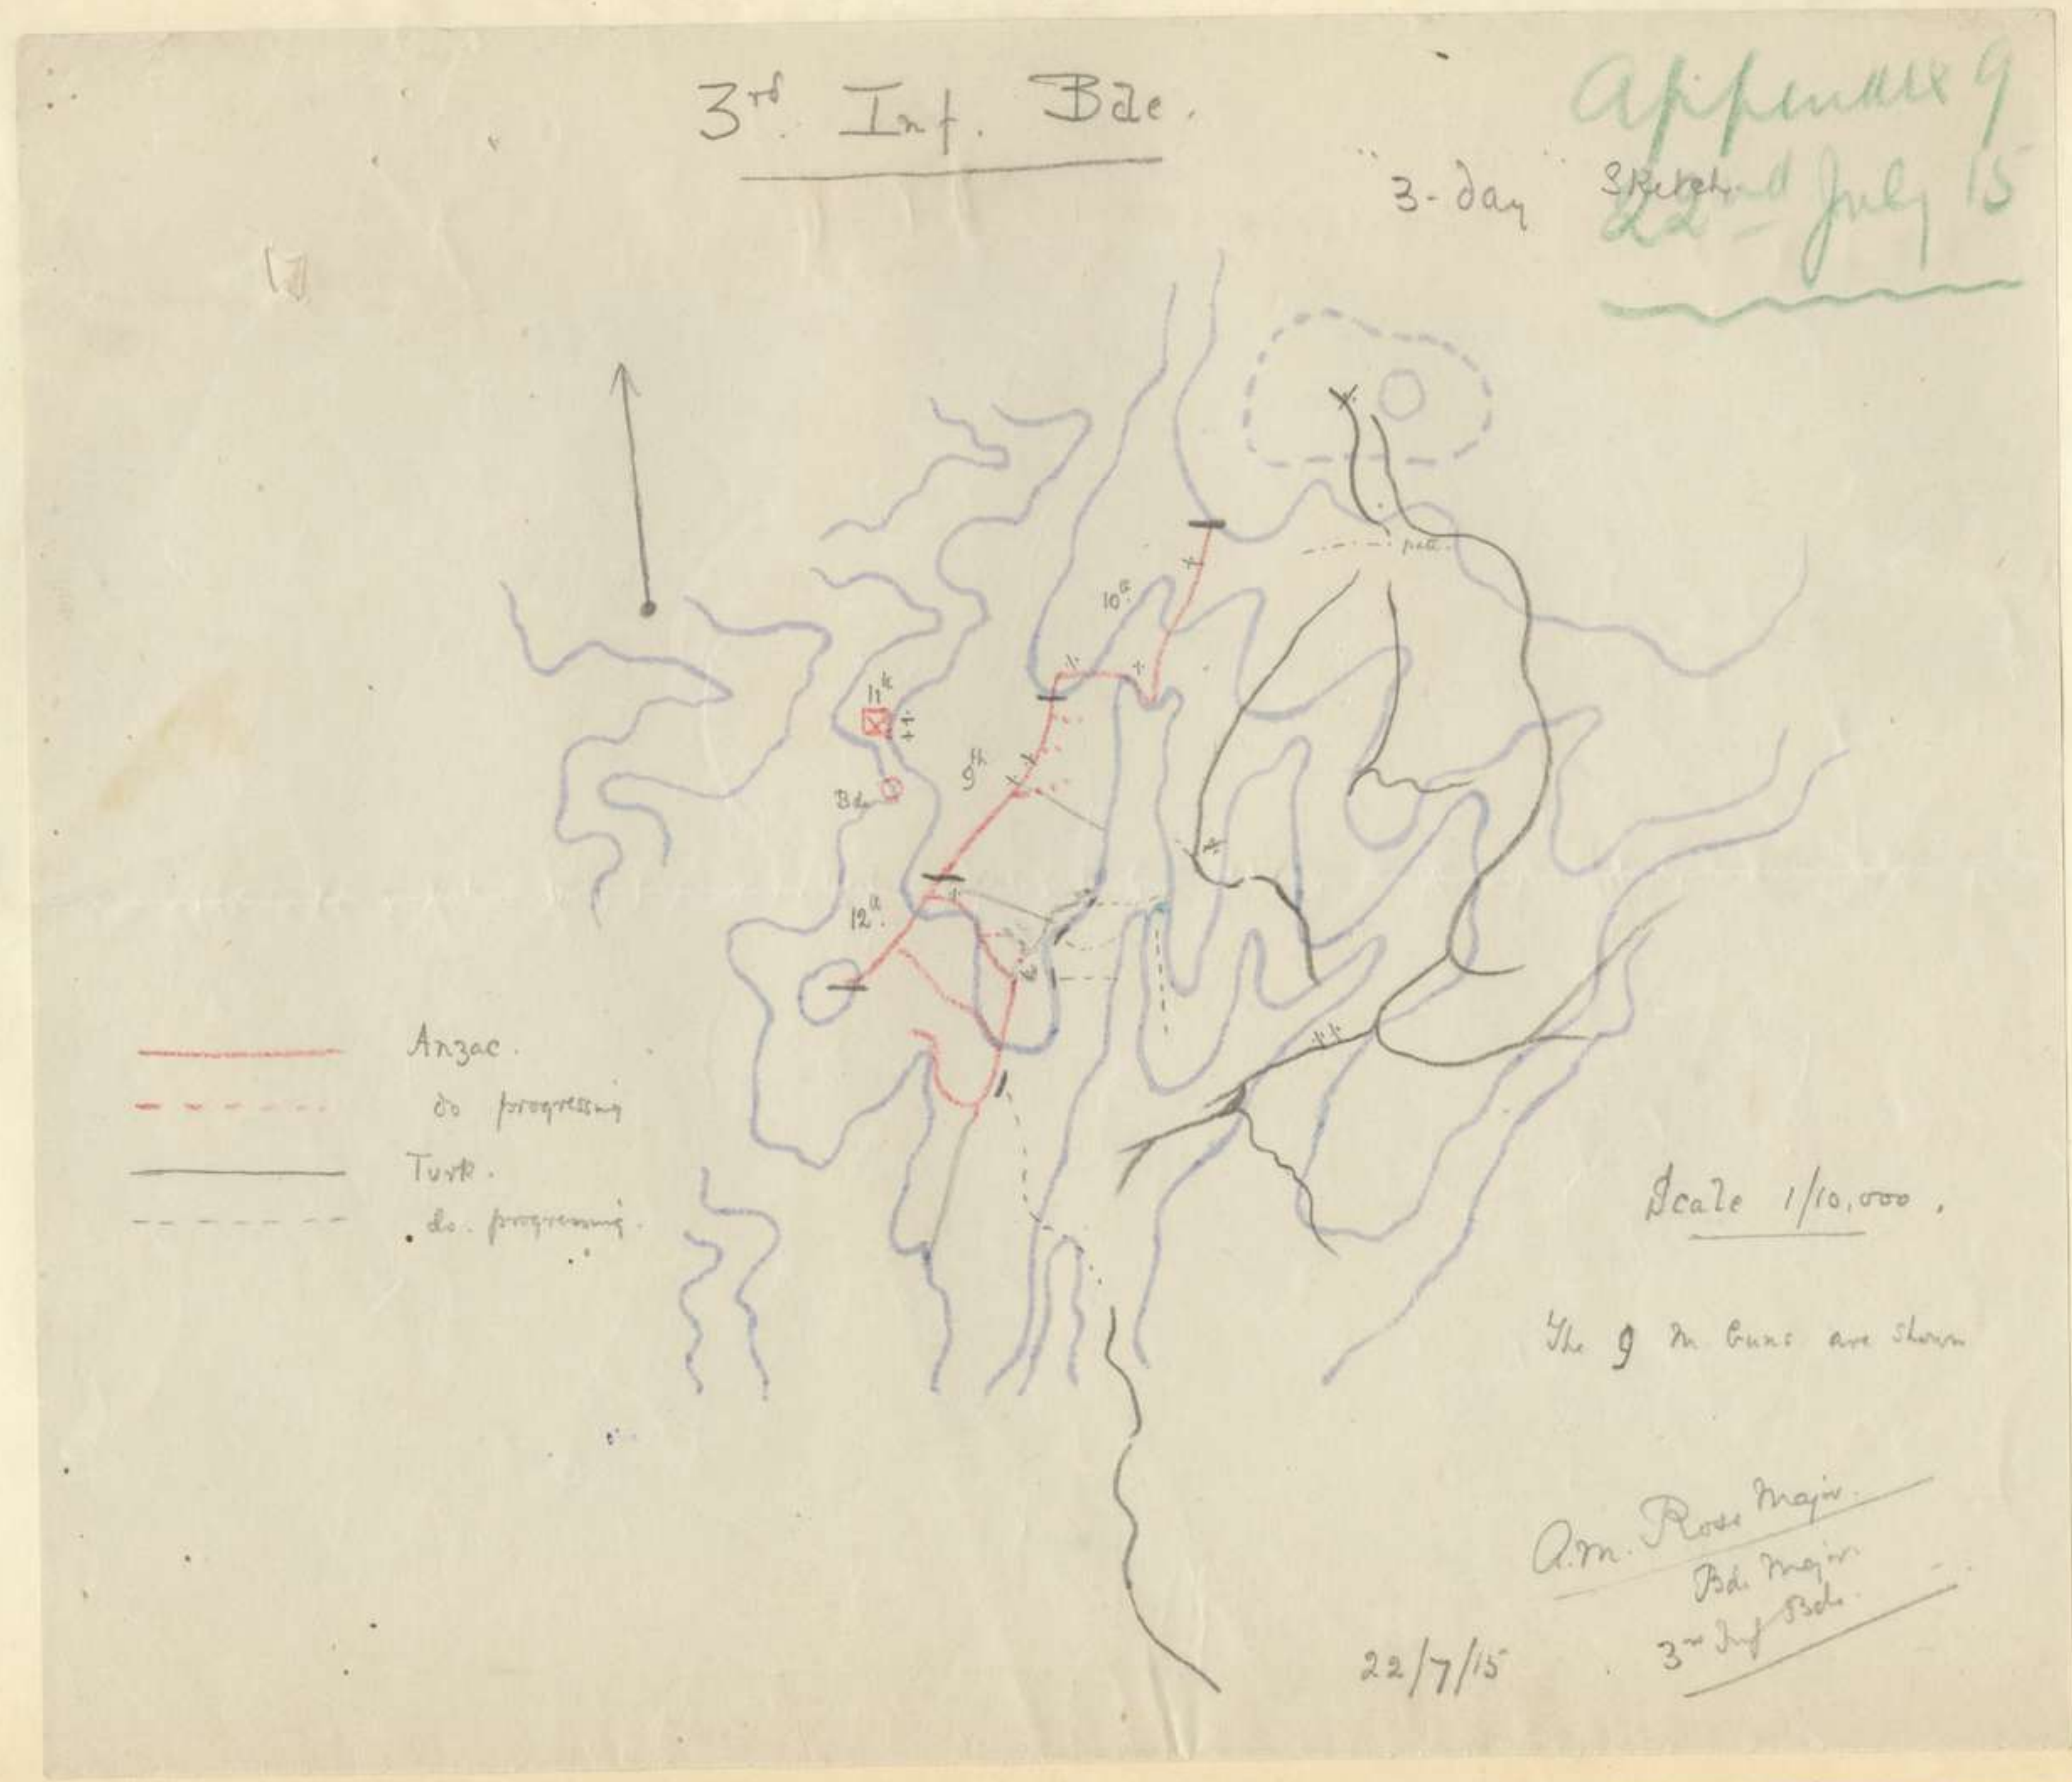 3rd. Inf. Bde.
Appendix 9
22nd July 15
"3-day" Sketch
10th
11th
9th
Bde
12th
Anzac.
do progressing
Turk.
do. progressing.
Scale 1/10,000.
The 9 M Guns are shown
A.M. Ross Major.
Bde Major
3rd Inf Bde.
22/7/15